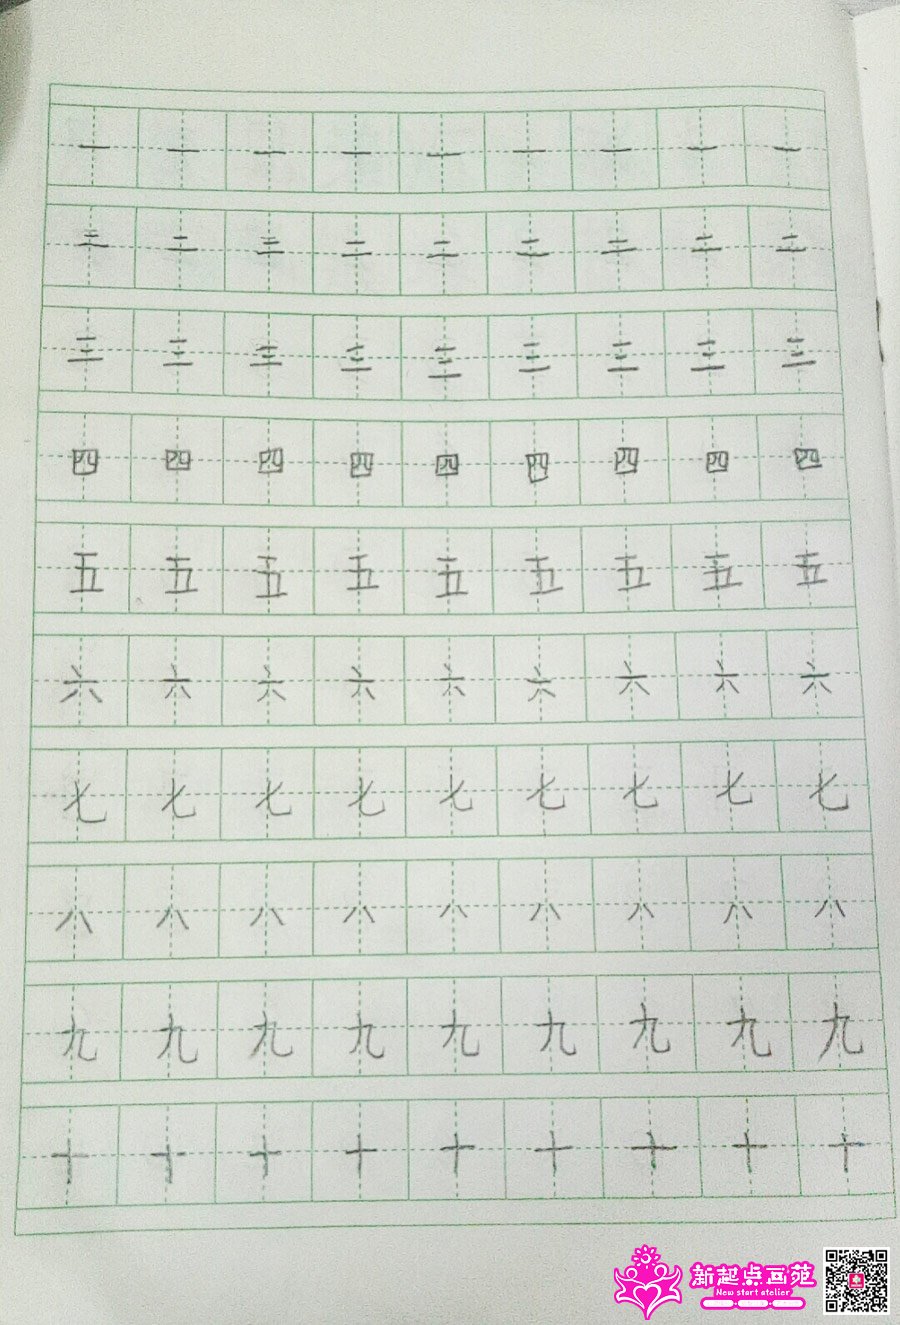 一 一 一 一 一 一 一 一 一
二 二 二 二 二 二 二 二 二
三 三 三 三 三 三 三 三 三
四 四 四 四 四 四 四 四 四
五 五 五 五 五 五 五 五 五
六 六 六 六 六 六 六 六 六
七 七 七 七 七 七 七 七 七
八 八 八 八 八 八 八 八 八
九 九 九 九 九 九 九 九 九
十 十 十 十 十 十 十 十 十
新起点画苑
New start atelier